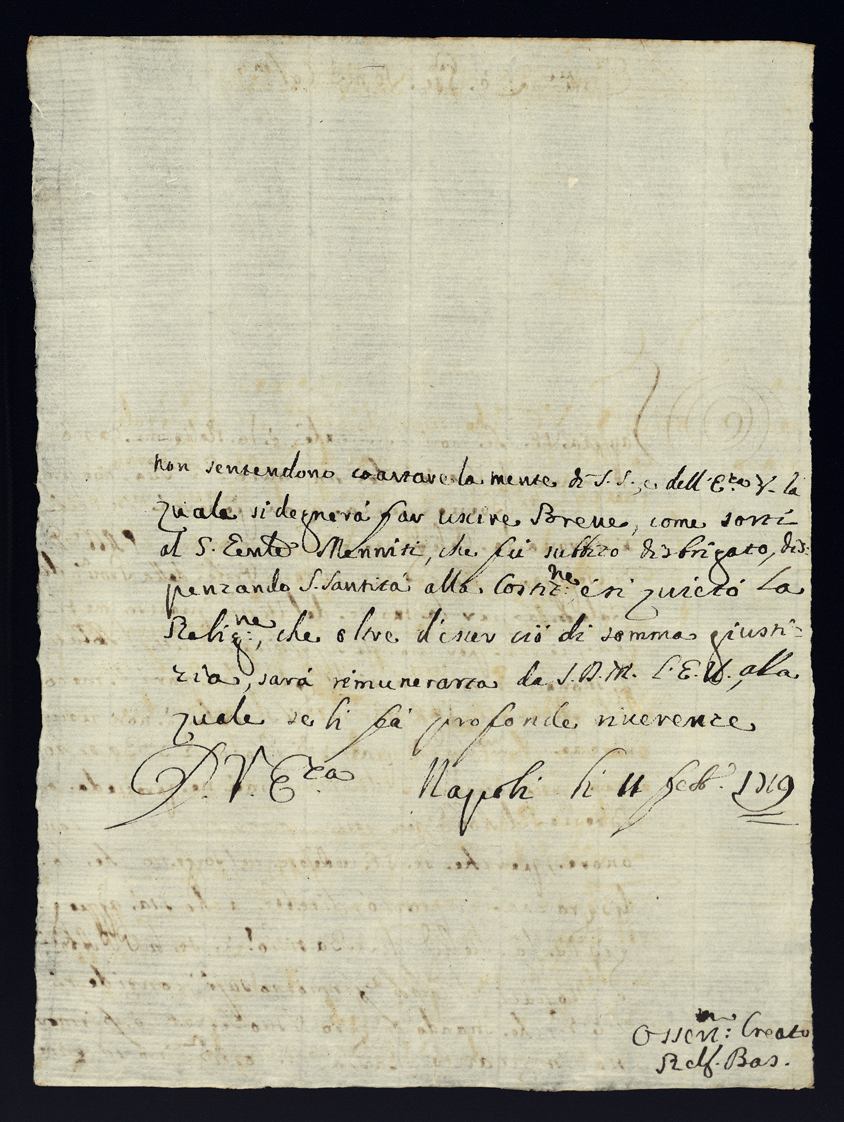 non sentendono coartare la mente di S. S., e dell' E.za V. la
quale si degnerá far uscire Breve, come sortí
al S. Ente Menniti, che fú subbito disbrigato, dis:
penzando S. Santitá alla Costit:ne é si quietó la
Relig:ne, che oltre d'esser ció di somma giusti:
zia, sará rimunerata da S. D. M. l'E. V., alla
quale se li fá profonde riverenze
D. V. E.za Napoli li 11 feb.º 1719
Osserv:m Creato
Bas.